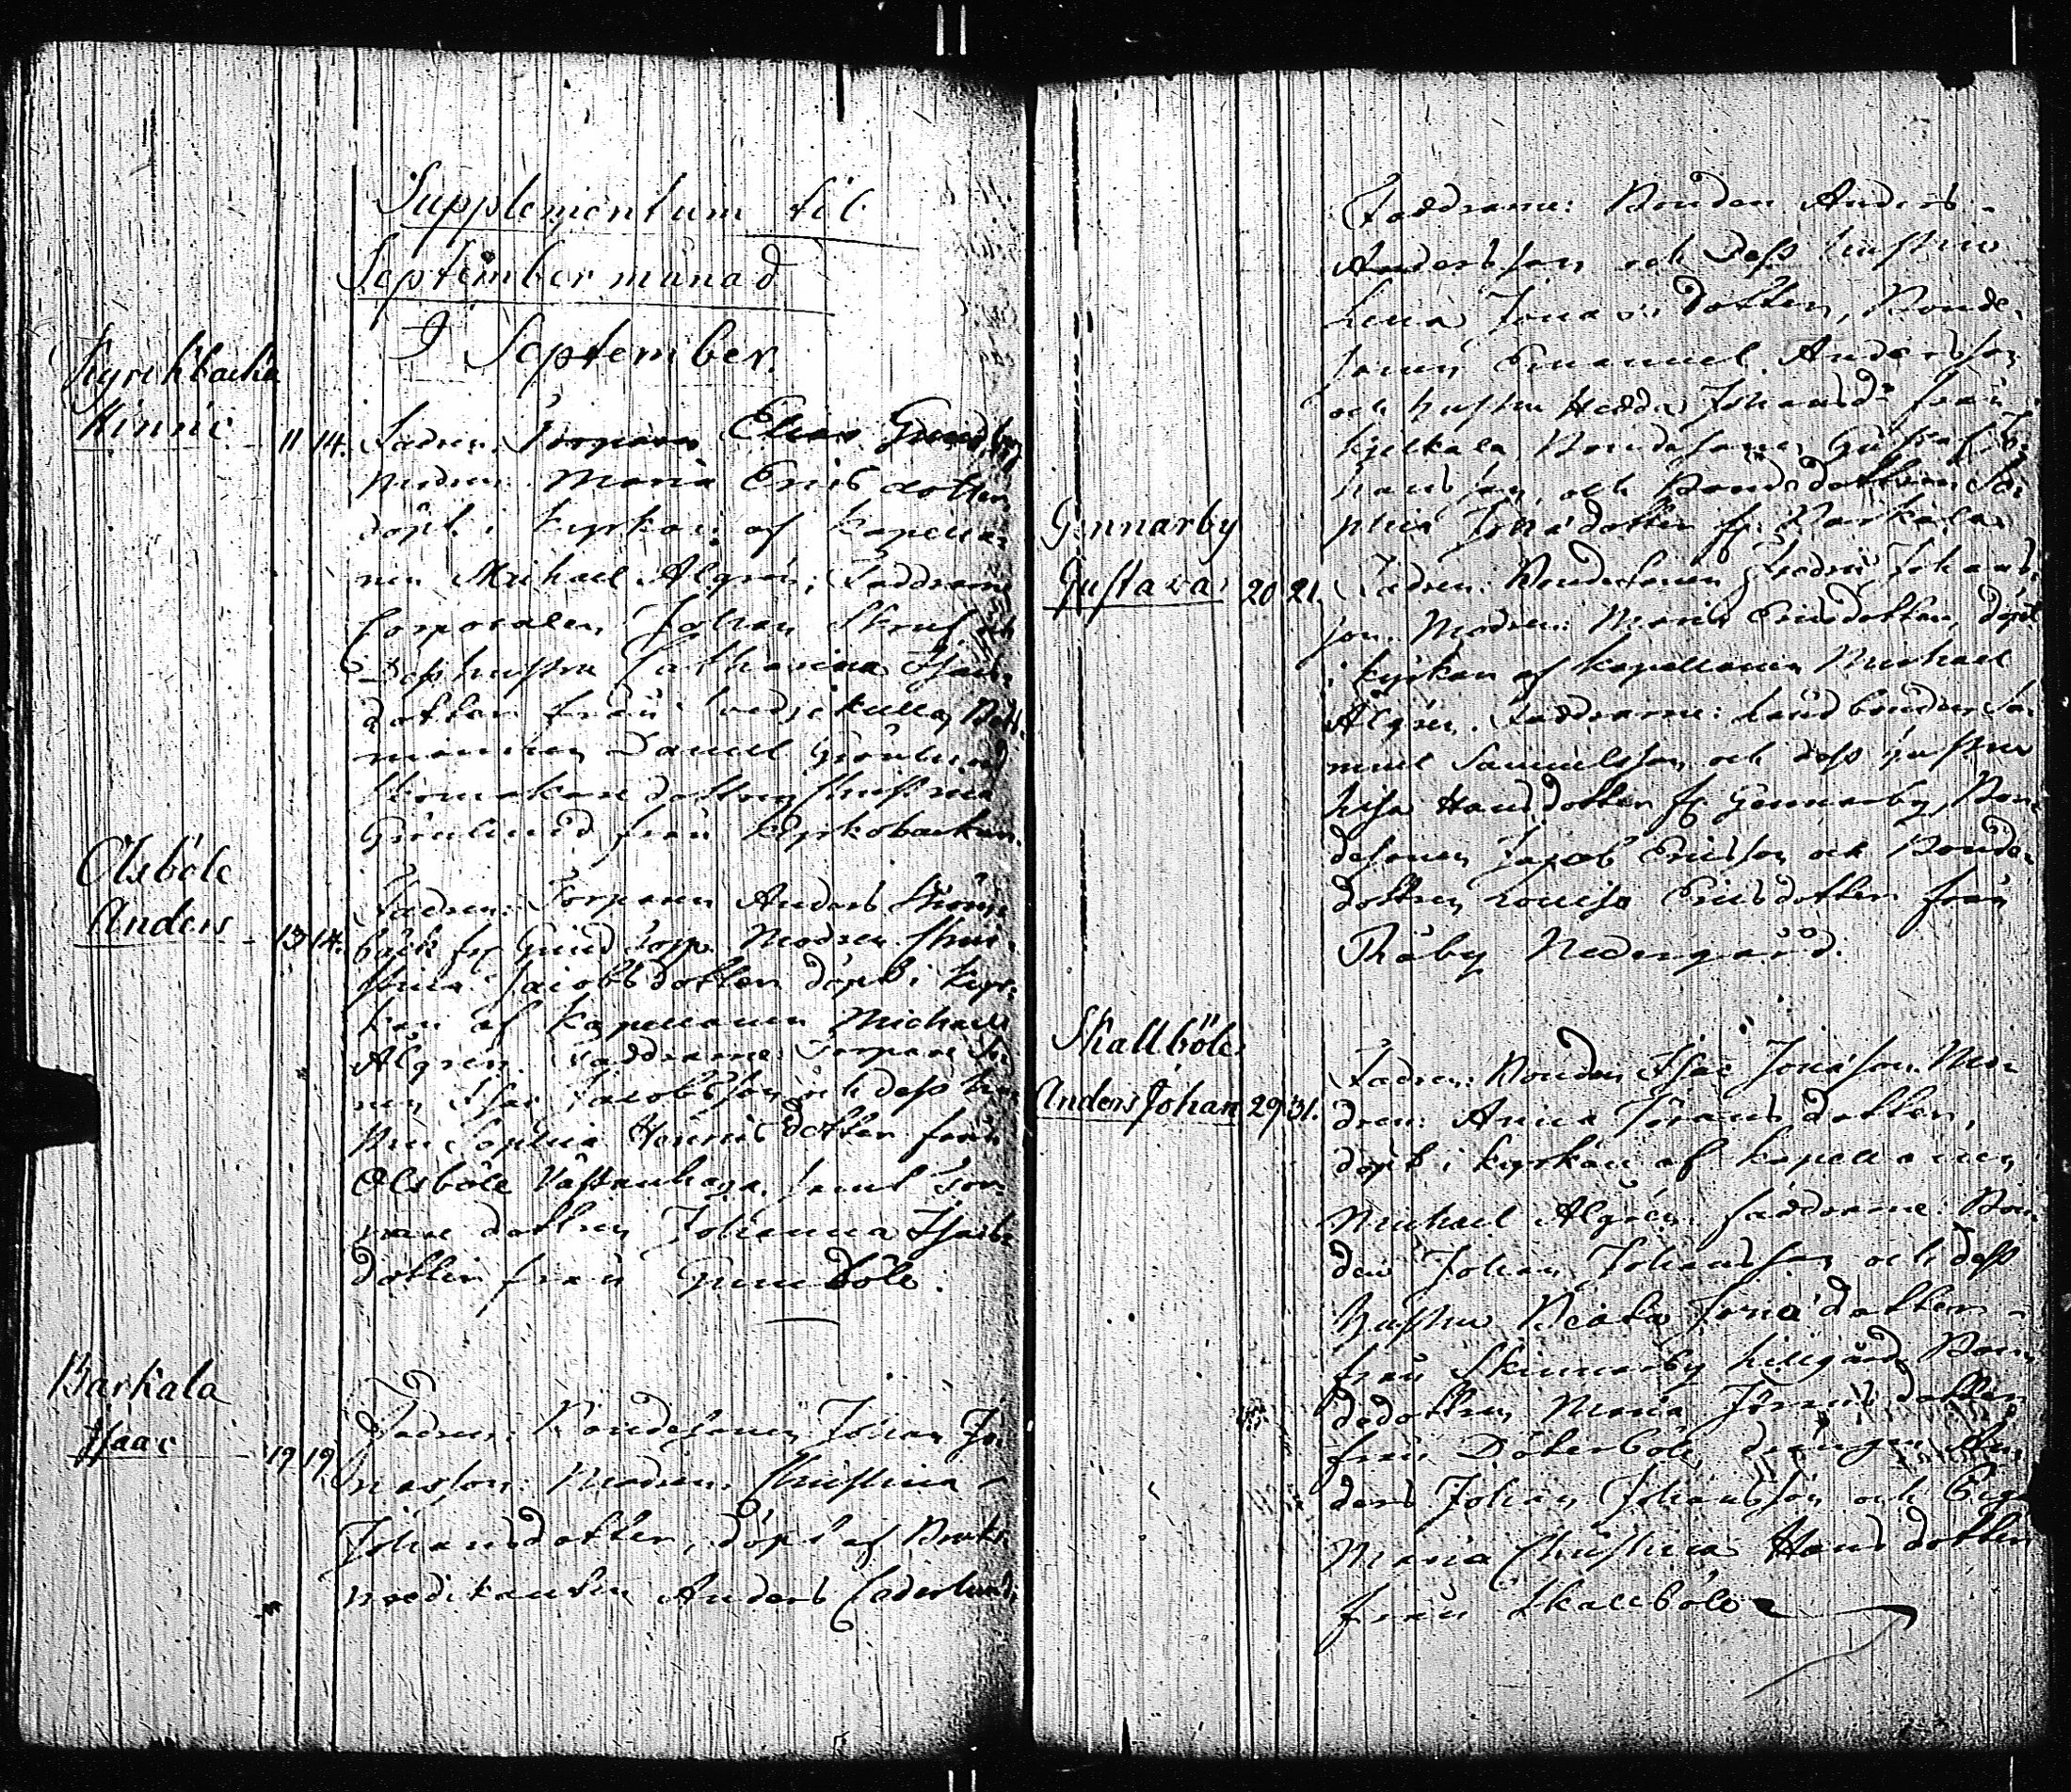 Supplementum til
September månad
I September.
Kyrckbacka
Hinric 11 14. Fadren: Torparen Elias
Modren: Maria Ericsdotter
döpt i kyrkan af kapella-
nen Michael Algren; Faddrarne
Corporalen Johan Skruf och
Dess hustru Catharina Isacs
dotter från
Daniel Grönlund
Grönlund från Kyrkobackan.
Olsböle
Anders 13 14. Fadren: Torparen Anders
bäck fr Modren Chri-
stina Jacobsdotter döpt i kyr-
kan af kapellanen Michael
Algren. Faddrarne: Torpare so-
nen Isac Jacobsson och dess hu-
stru Sophia Henricsdotter från
Olsböle samt Tor-
pare dottren Johanna Isacs
dotter från Gunnböle.
Barkala
Isaac 19 19. Fadren: Bondesonen Johan Jo-
nasson. Modren: Christina
Johansdotter, döpt af Bruks
predikanten Anders Cederlund.
Faddrarne: Bonden Anders
Andersson och Dess hustru
Lena Jonasdotter, Bonde-
sonen Emanuel Andersson
och hustru Hedda Johansdr från
Bondesonen Gustaf Jo-
hansson, och Bondedottren So-
phia Jonasdotter fr. Barkala
Gennarby
Gustava 20 21. Fadren: Bondesonen Fredric Johans-
son. Modren: Maria Ericsdotter, döpt
i kyrkan af kapellanen Michael
Algren. Faddrarne: Landbonden Sa-
muel Samuelsson och dess hustru
Lisa Hansdotter fr Gennarby, Bon-
desonen Jacob Ericsson och Bonde-
dottren Lovisa Ericsdotter från
Thåby Nedergård.
Skallböle
Anders Johan 29 31. Fadren: Bonden Isac Jonasson. Mo-
dren: Anna Göransdotter,
döpt i kyrkan af kapellanen
Michael Algren. faddrarne: Bon-
den Johan Johansson och dess
hustru Beata Jonasdotter
från Skinnarby Lillgård, Bon-
dedottren Maria
från Döterböle, drängen An-
ders Johan Johansson och
Maria Christina Hansdotter
från Skallböle